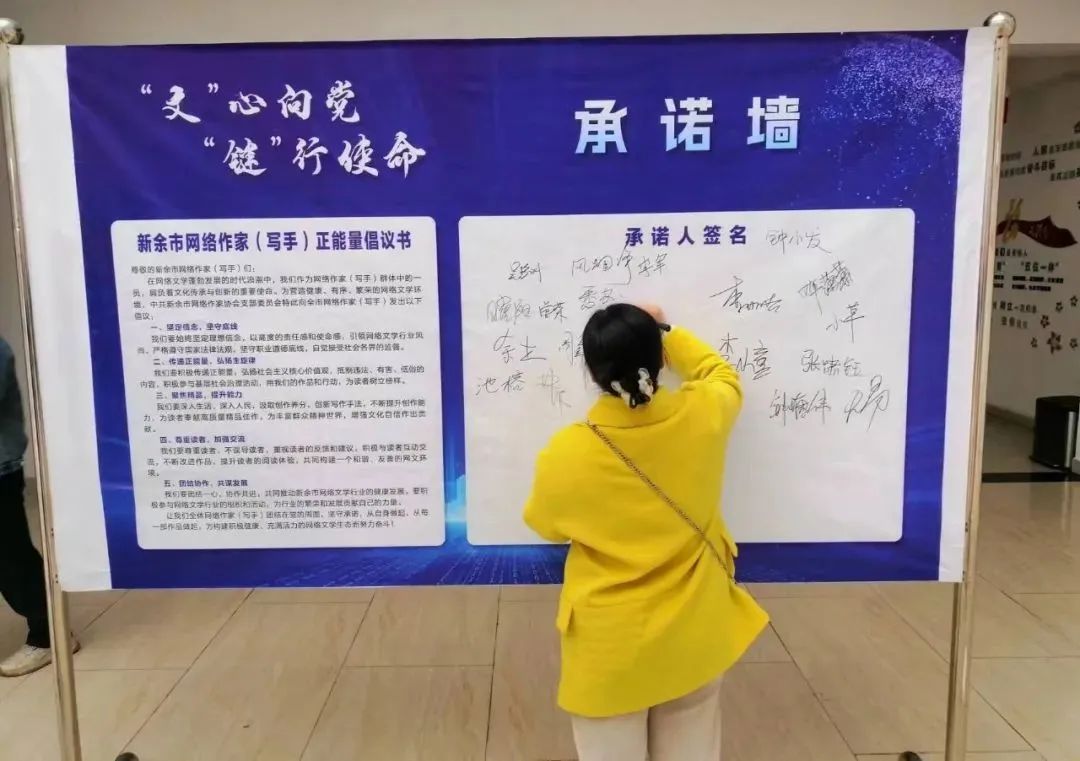 “文”心向党
“链”行使命
承诺墙
新余市网络作家（写手）正能量倡议书
尊敬的新余市网络作家（写手）们：
在网络文学蓬勃发展的时代浪潮中，我们作为网络作家（写手）群体中的一
员，肩负着文化传承与创新的重要使命。为营造健康、有序、繁荣的网络文学环
境，中共新余市网络作家协会支部委员会特此向全市网络作家（写手）发出以下
倡议：
一、坚定信念，坚守底线
我们要始终坚定理想信念，以高度的责任感和使命感，引领网络文学行业风
尚。严格遵守国家法律法规，坚守职业道德底线，自觉接受社会各界的监督。
二、传递正能量，弘扬主旋律
我们要积极传递正能量，弘扬社会主义核心价值观，抵制违法、有害、低俗的
内容，积极参与基层社会治理活动，用我们的作品和行动，为读者树立榜样。
三、聚焦精品，提升能力
我们要深入生活、深入人民，汲取创作养分，创新写作手法，不断提升创作能
力，为读者奉献高质量精品佳作，为丰富群众精神世界，增强文化自信作出贡
献。
四、尊重读者，加强交流
我们要尊重读者，不误导读者，重视读者的反馈和建议，积极与读者互动交
流，不断改进作品，提升读者的阅读体验，共同构建一个和谐、友善的网文环
境。
五、团结协作，共谋发展
我们要团结一心，协作共进，共同推动新余市网络文学行业的健康发展。要积
极参与网络文学行业的组织和活动，为行业的繁荣和发展贡献自己的力量。
让我们全体网络作家（写手）团结在党的周围，坚守承诺，从自身做起，从每
一部作品做起，为构建积极健康、充满活力的网络文学生态而努力奋斗！
承诺人签名
钟小发
小草
余土
池榕